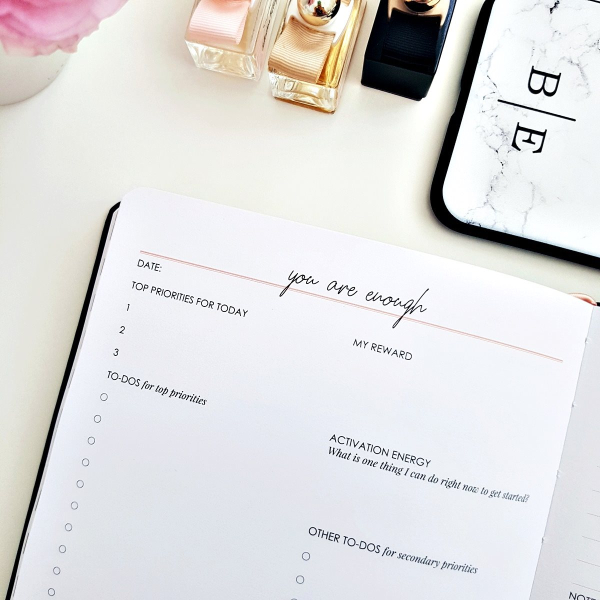 B | E
you are enough
DATE:
TOP PRIORITIES FOR TODAY
1
2
3
MY REWARD
TO-DOS for top priorities
ACTIVATION ENERGY
What is one thing I can do right now to get started?
OTHER TO-DOS for secondary priorities